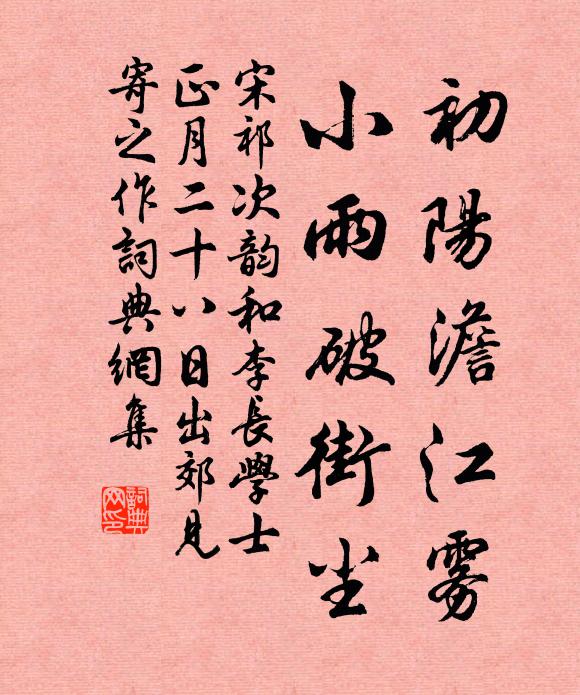 初陽澹江雾
小雨破街尘
宋祁次韵和李長學士
正月二十八日出郊見
寄之作詞典網集
詞典
网印